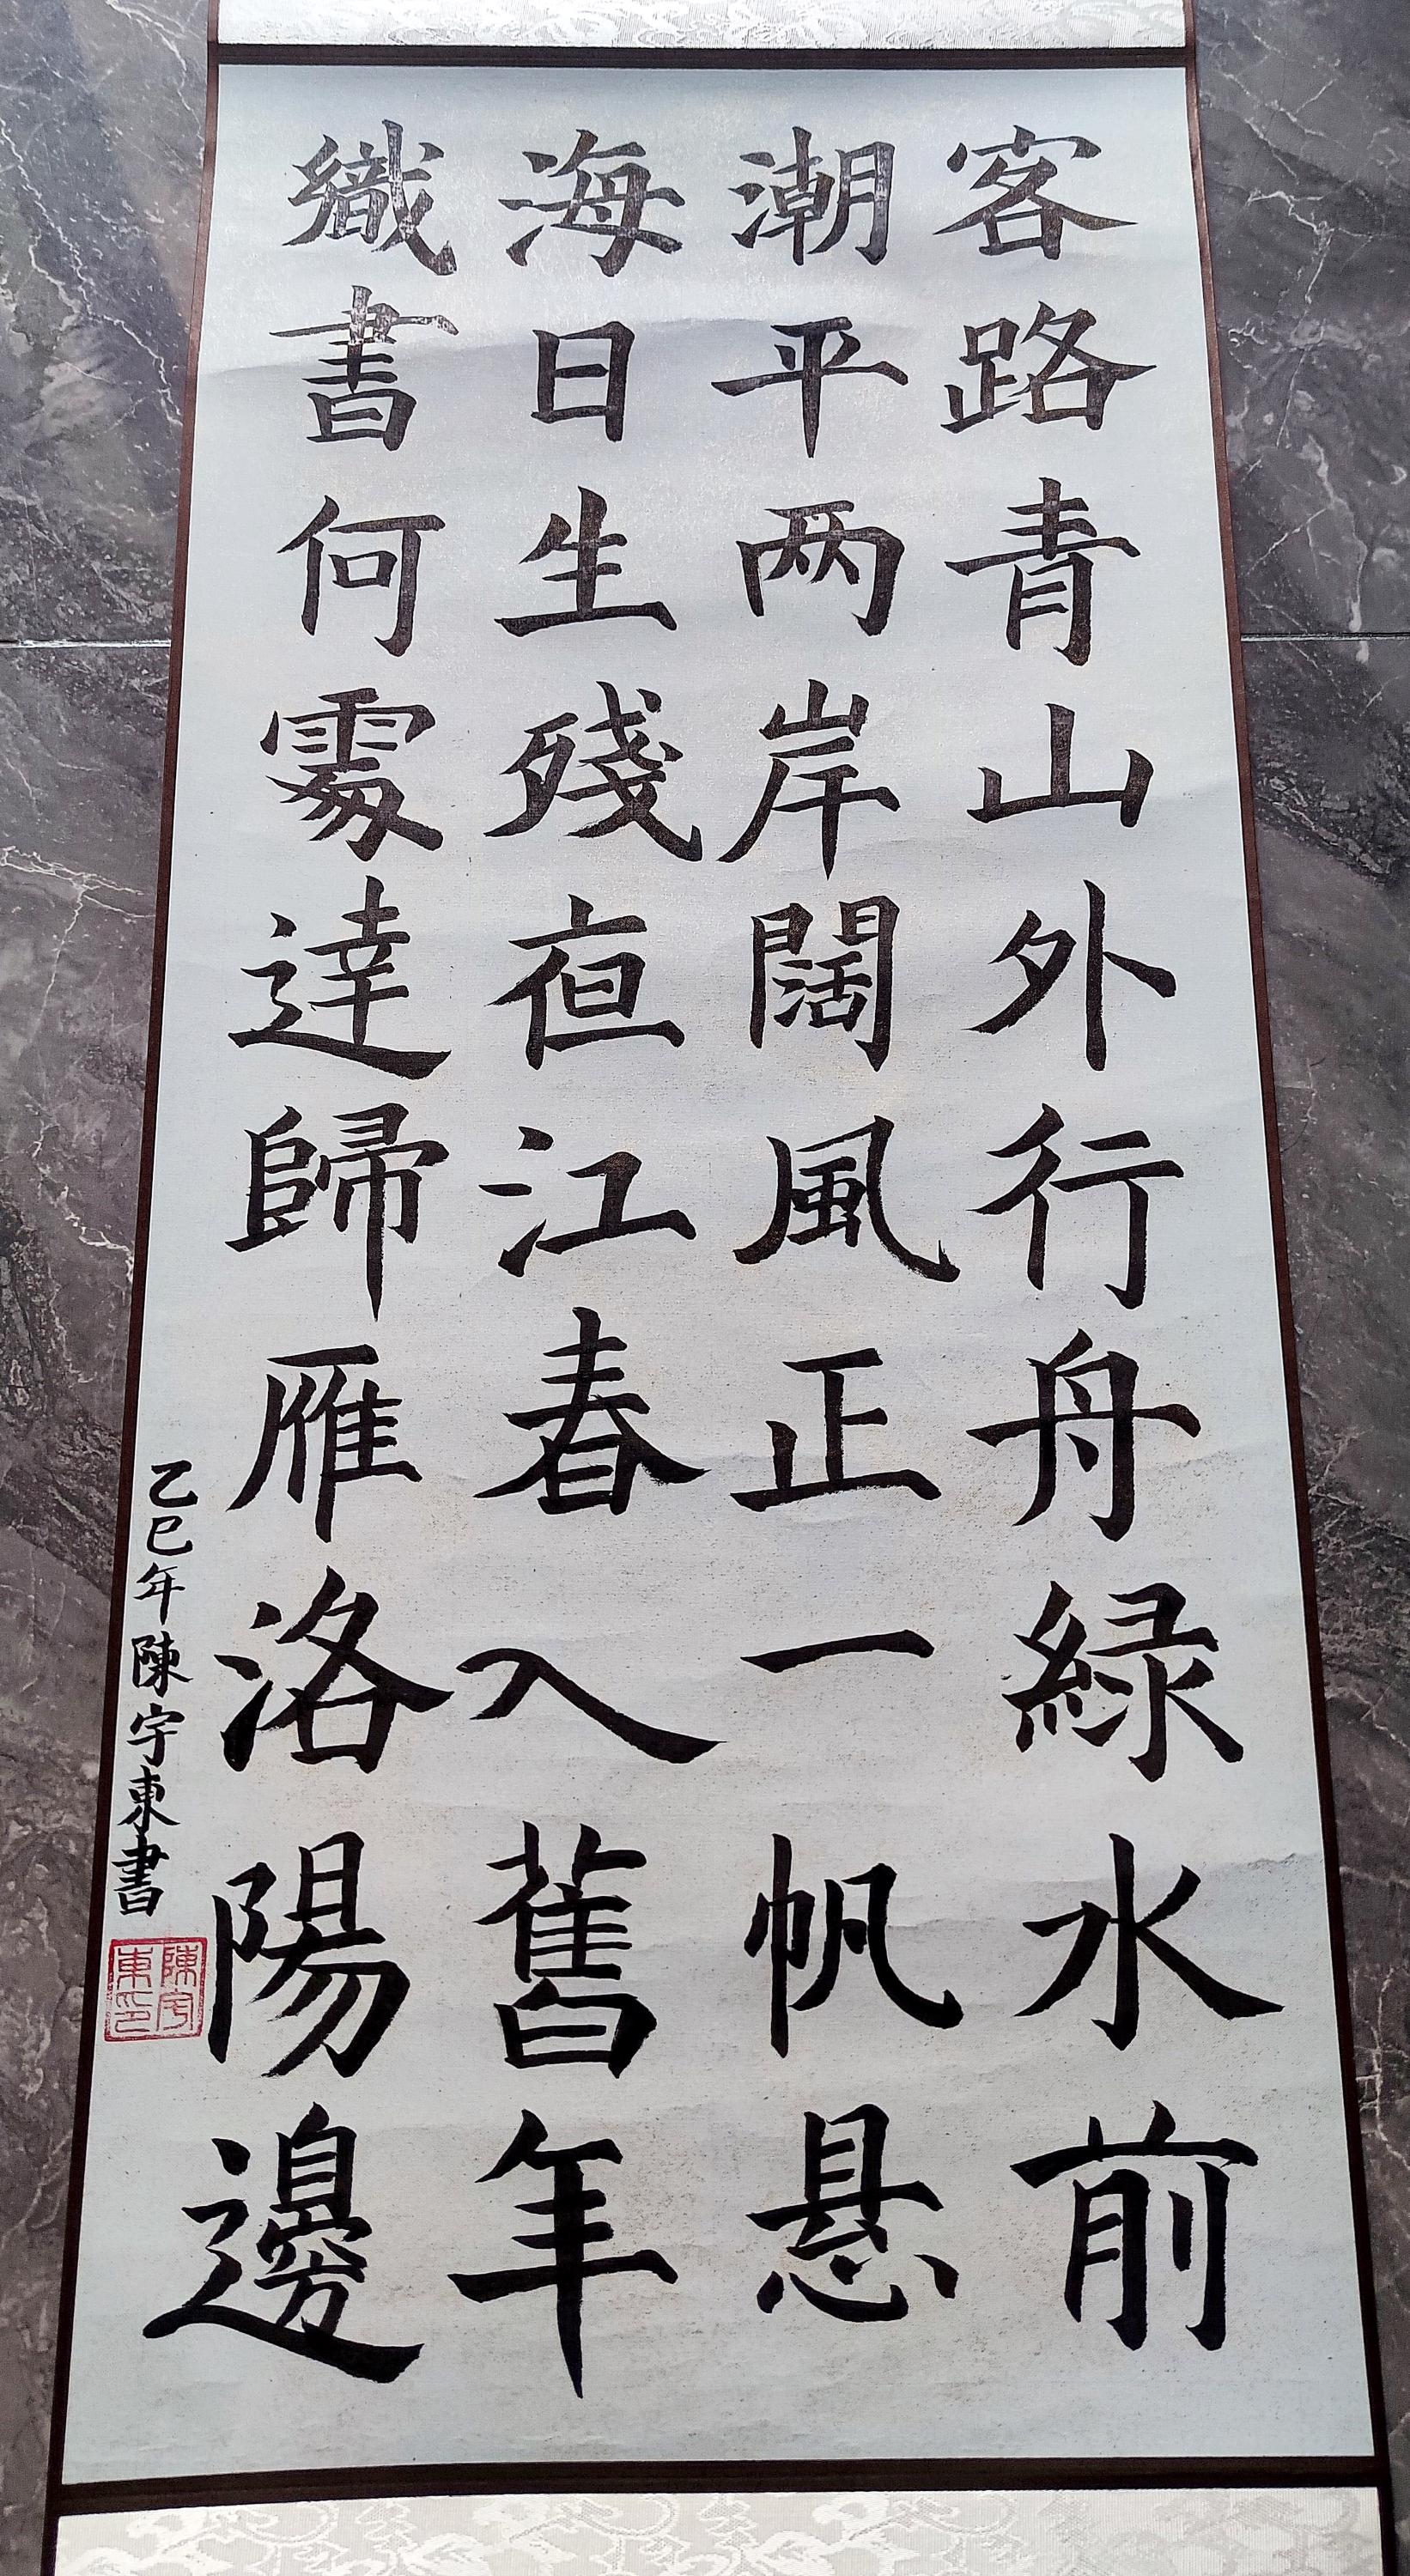 客路青山外行舟緑水前
潮平两岸闊風正一帆悬
海日生殘夜江春入舊年
織書何處達歸雁洛陽邊
乙巳年陳宇東書
陳宇東印